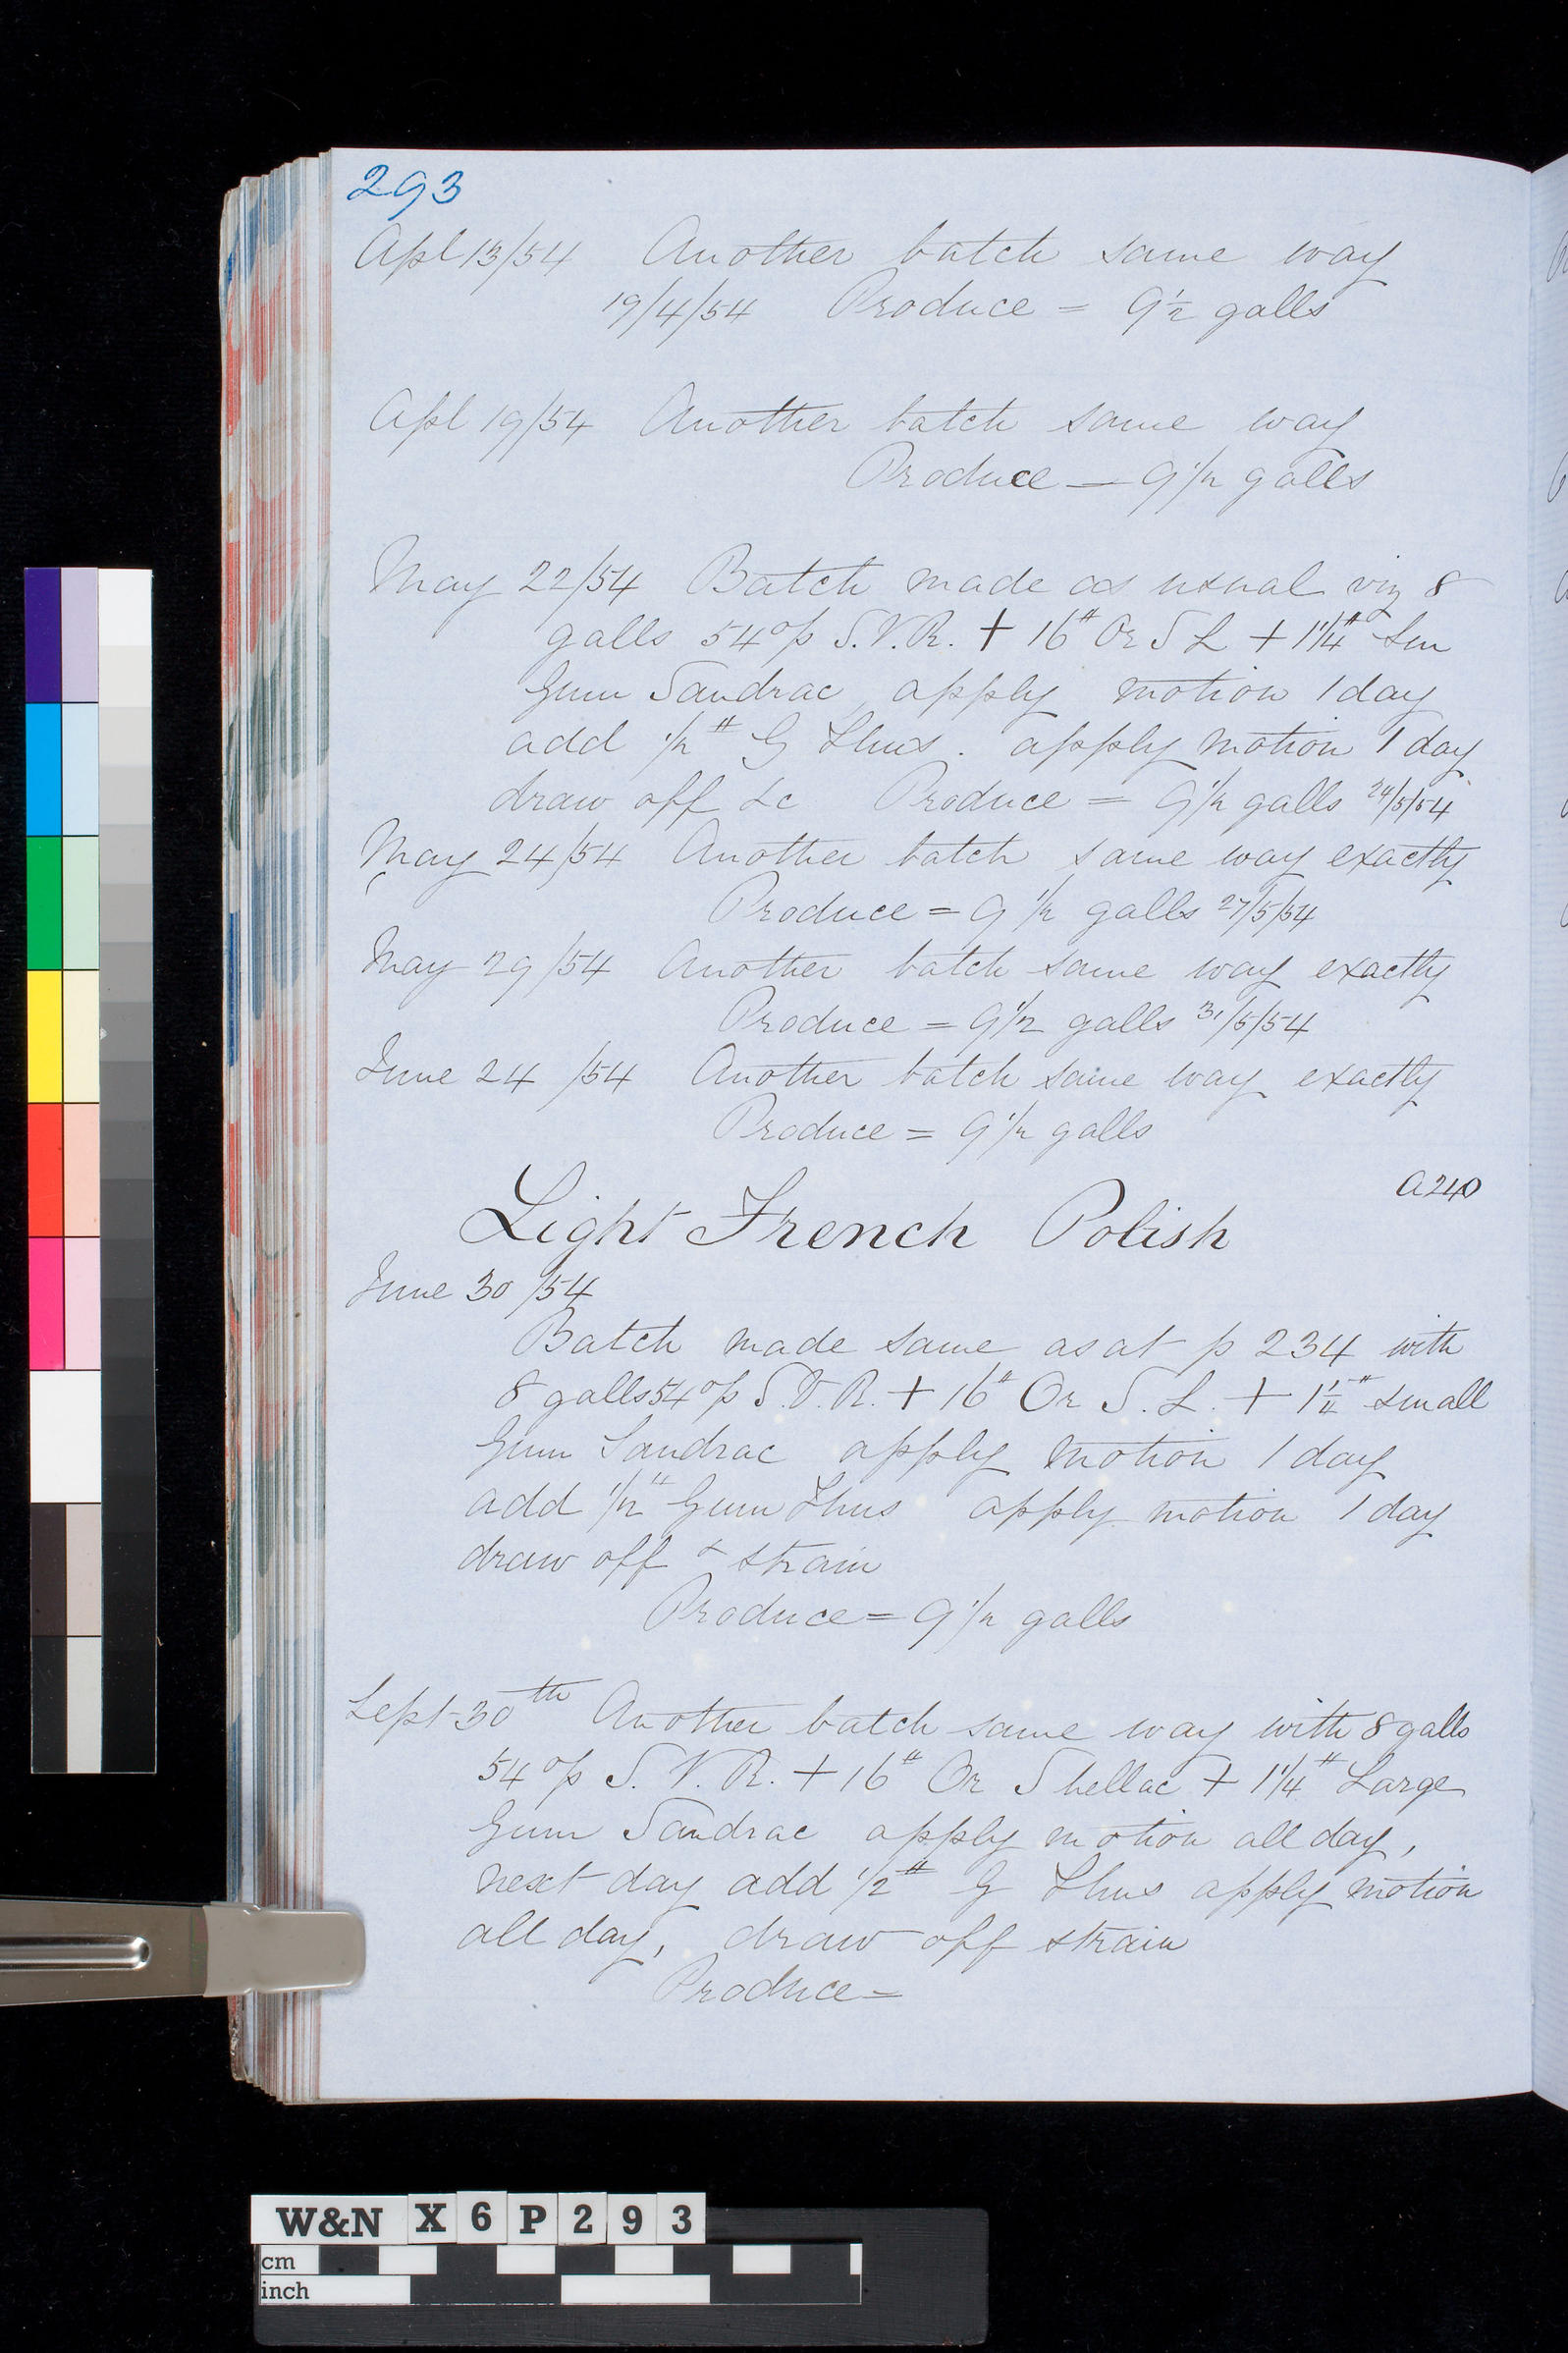 293
Apl 13/54 Another batch same way
19/4/54 Produce = 9 1/2 galls
Apl 19/54 Another batch same way
Produce = 9 1/2 galls
May 22/54 Batch made as usual viz 8
galls 54 o/p S.V.R. + 16# Or S L + 1 1/4# Sm
Gum Sandrac apply motion 1 day
add 1/2# G Thus. apply motion 1 day
draw off &c Produce = 9 1/2 galls 24/5/54
May 24/54 Another batch same way exactly
Produce = 9 1/2 galls 27/5/54
May 29/54 Another batch same way exactly
Produce = 9 1/2 galls 31/5/54
June 24/54 Another batch same way exactly
Produce = 9 1/2 galls
A240
Light French Polish
June 30/54
Batch made same as at p 234 with
8 galls 54 o/p S.V.R. + 16# Or S.L. + 1 1/4# small
Gum Sandrac apply motion 1 day
add 1/2# Gum Thus apply motion 1 day
draw off & strain
Produce = 9 1/2 galls
Sept 30th Another batch same way with 8 galls
54 o/p S.V.R. + 16# Or Shellac + 1 1/4# Large
Gum Sandrac apply motion all day,
next day add 1/2# G Thus apply motion
all day, draw off strain
Produce =
W&N X6P293
cm
inch